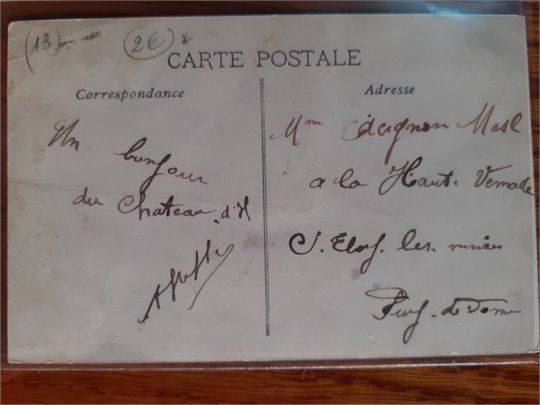 (13)
(2€)*
CARTE POSTALE
Correspondance
Un bonjour
du Chateau d'If
Adresse
Mme
a la Haut. Vernade
S. Eloy. les mines
Puy-de-Dome